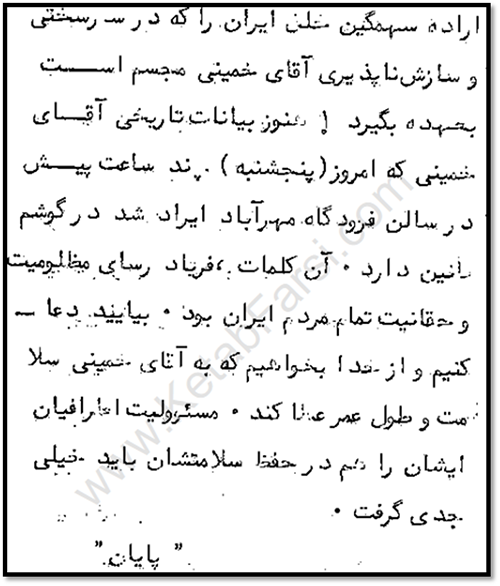 اراده سهمگین خلق ایران را که در سرسختی
و سازش‌ناپذیری آقای خمینی مجسم است
بعهده بگیرد ! هنوز بیانات تاریخی آقای
خمینی که امروز (پنجشنبه) چند ساعت پیش
در سالن فرودگاه مهرآباد ایراد شد در گوشم
طنین دارد . آن کلمات ، فریاد رسای مظلومیت
و حقانیت تمام مردم ایران بود . بیایید دعا ـ
کنیم و از خدا بخواهیم که به آقای خمینی سلا
مت و طول عمر عطا کند . مسئرولیت اطرافیان
ایشان را هم در حفظ سلامتشان باید خیلی
جدی گرفت .
" پایان "
www.KetabFarsi.com